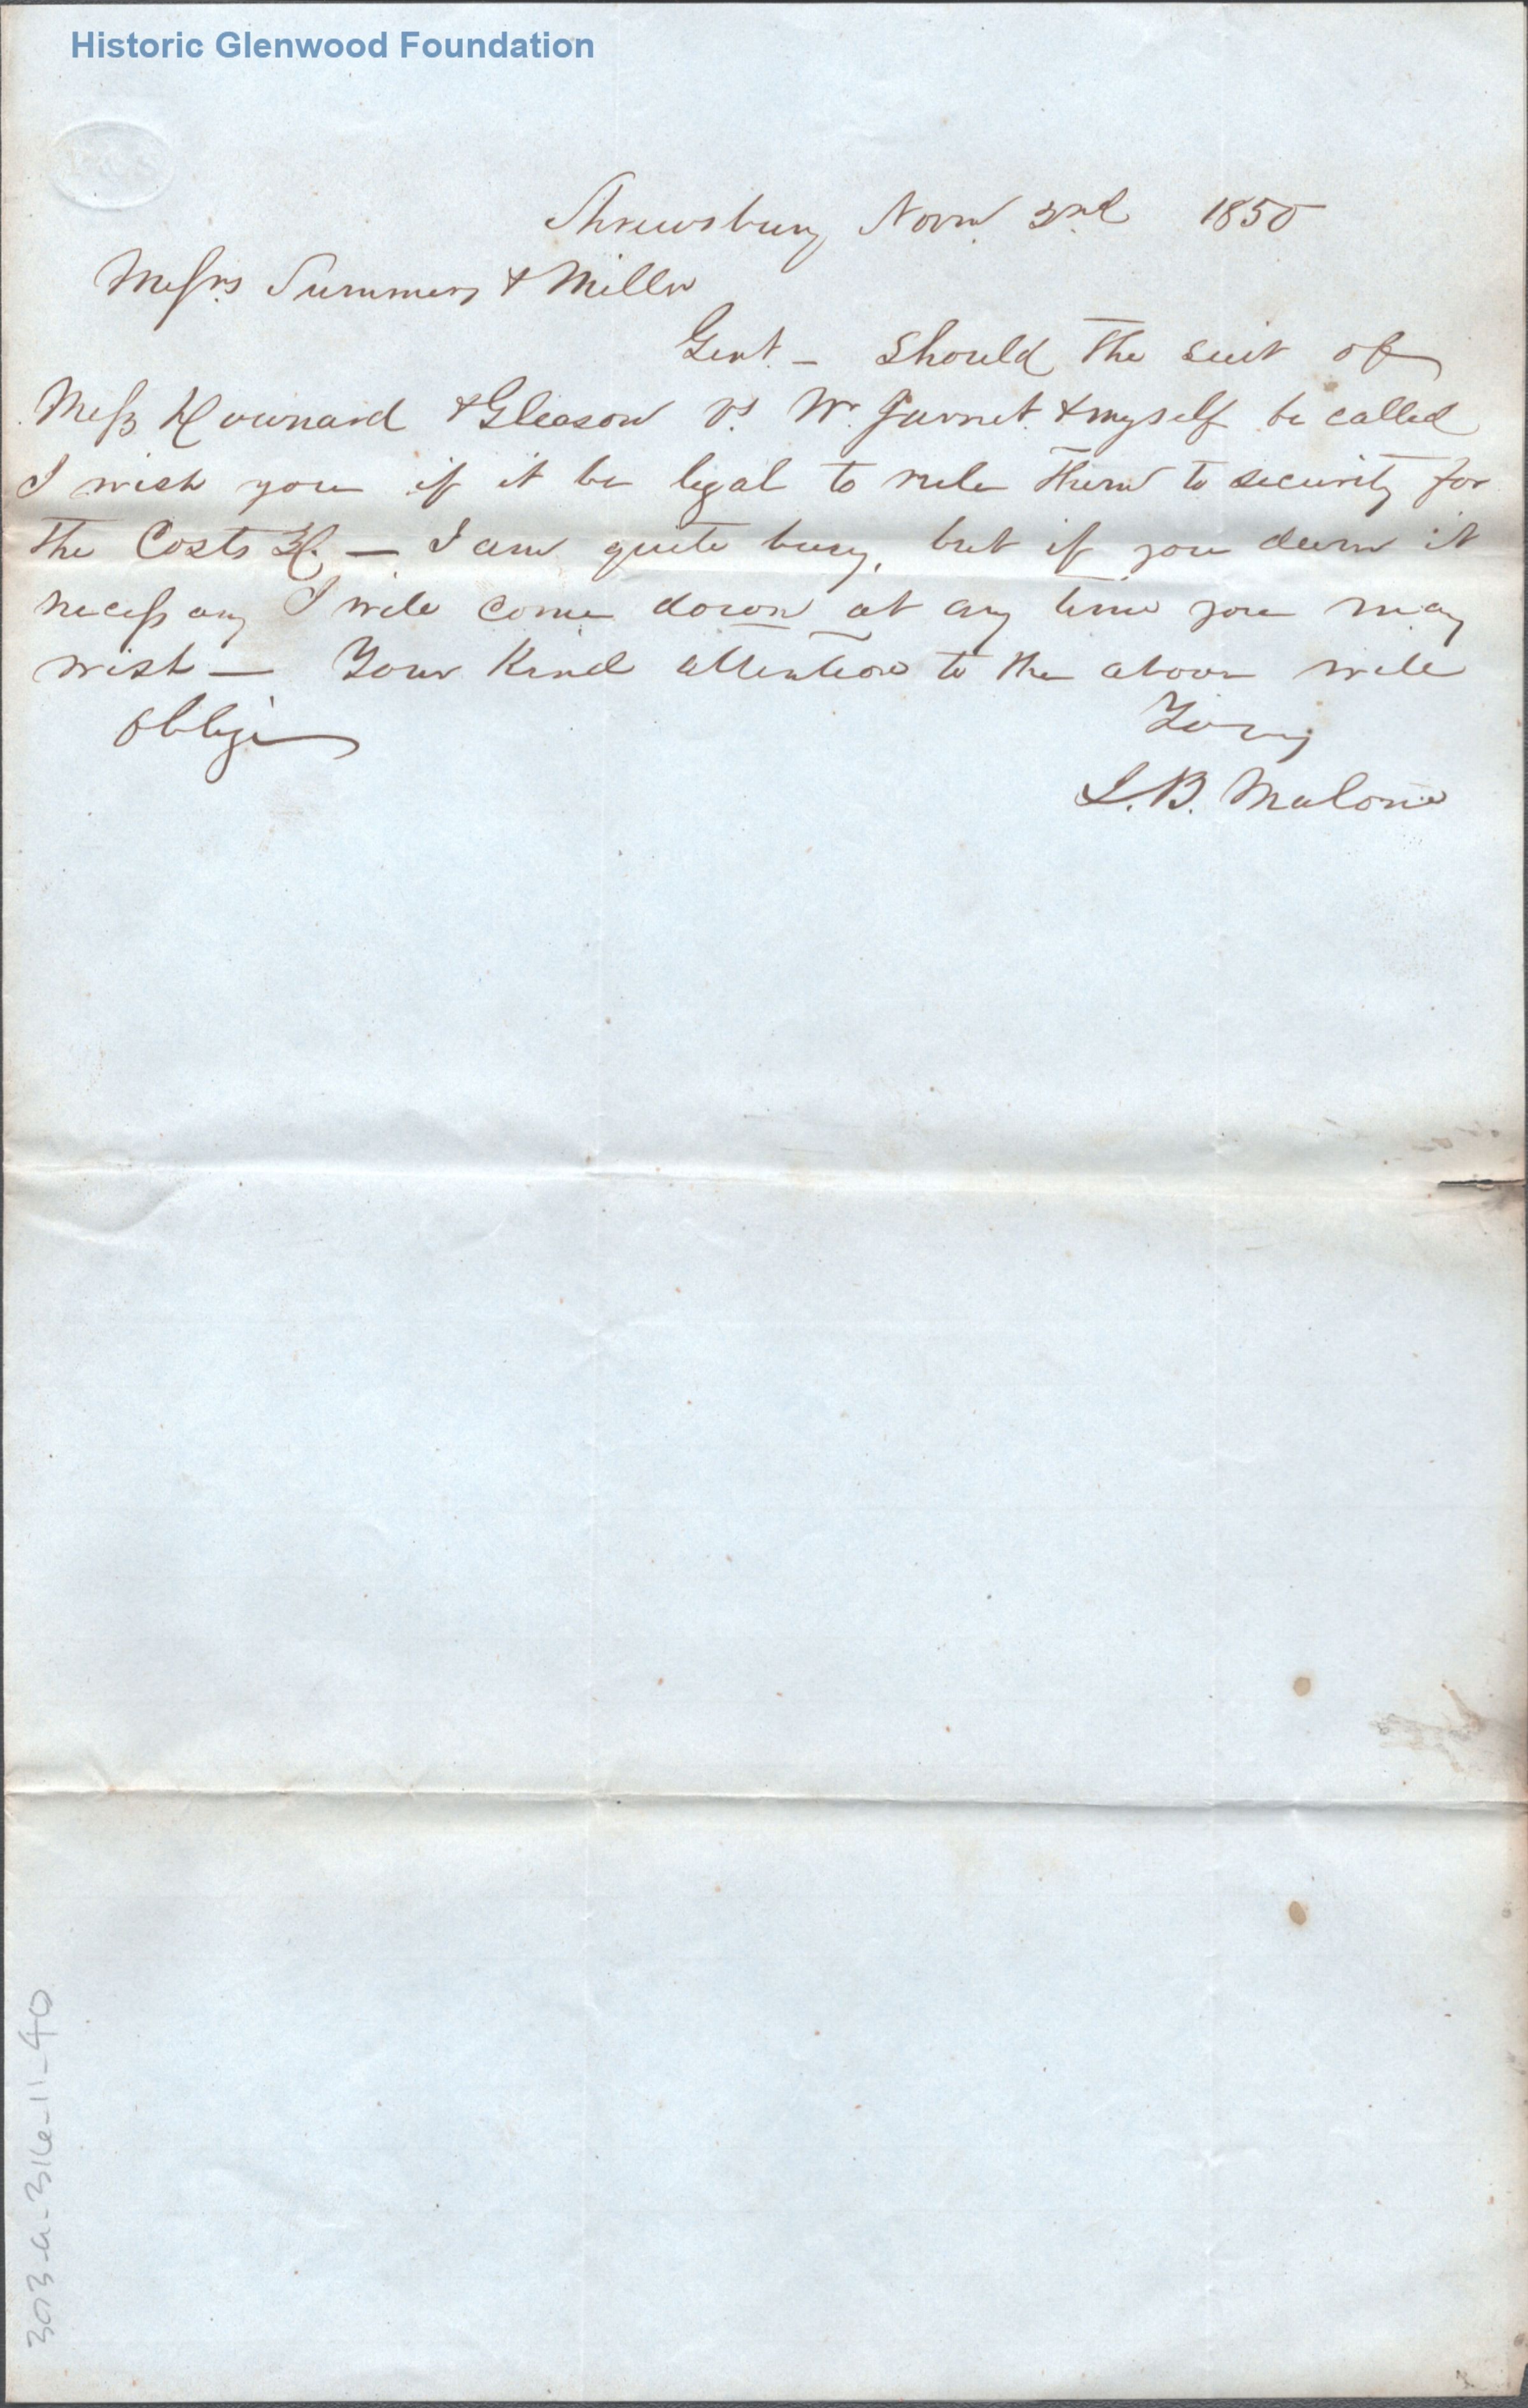 Historic Glenwood Foundation
Shrewsbury Novm 3rd 1850
Messrs Summers & Miller
Gent. – Should the suit of
Mess & Gleason vs. Wm Jarret & myself be called
I wish you if it be legal to rule them to security for
the Costs &c. — I am quite busy, but if you deem it
necessary I will come down at any time you may
wish — Your Kind attention to the above will
oblige
Yours
L. B. Malone
303-a-316-11-40